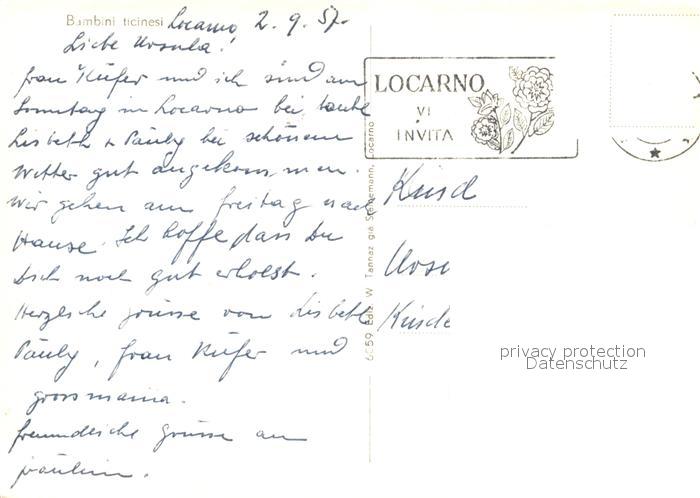 Bambini ticinesi Locarno 2. 9. 57.
Liebe Ursula!
Frau Kiefer und ich sind am
Sonntag in Locarno bei tante
Lisbeth + Pauly bei schönem
Wetter gut angekommen.
Wir gehen am Freitag nach
Hause. Ich hoffe dass Du
Dich noch gut erholst.
Herzliche grüsse von Lisbeth
Pauly, Frau Kiefer und
grossmama.
freundliche grüsse an
fräulein.
LOCARNO
VI
INVITA
6059 Ediz. W. Tannaz già Steinemann, Locarno
Kind
Ursu
Kinde
privacy protection
Datenschutz